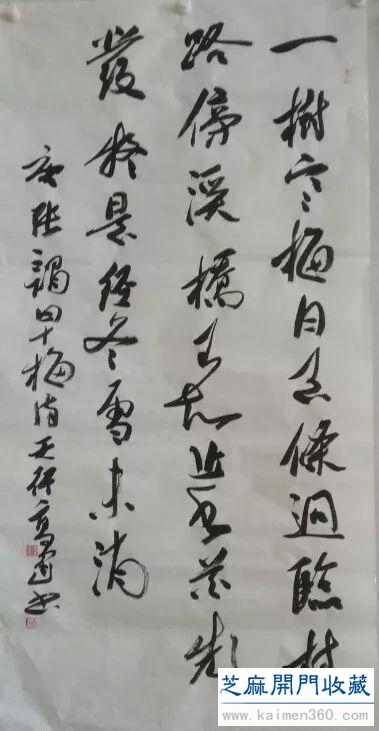 一樹寒梅白玉條迥臨村
路傍溪橋不知近水花先
發疑是經冬雪未消
張謂早梅詩 書
芝麻開門收藏
www.kaimen360.com